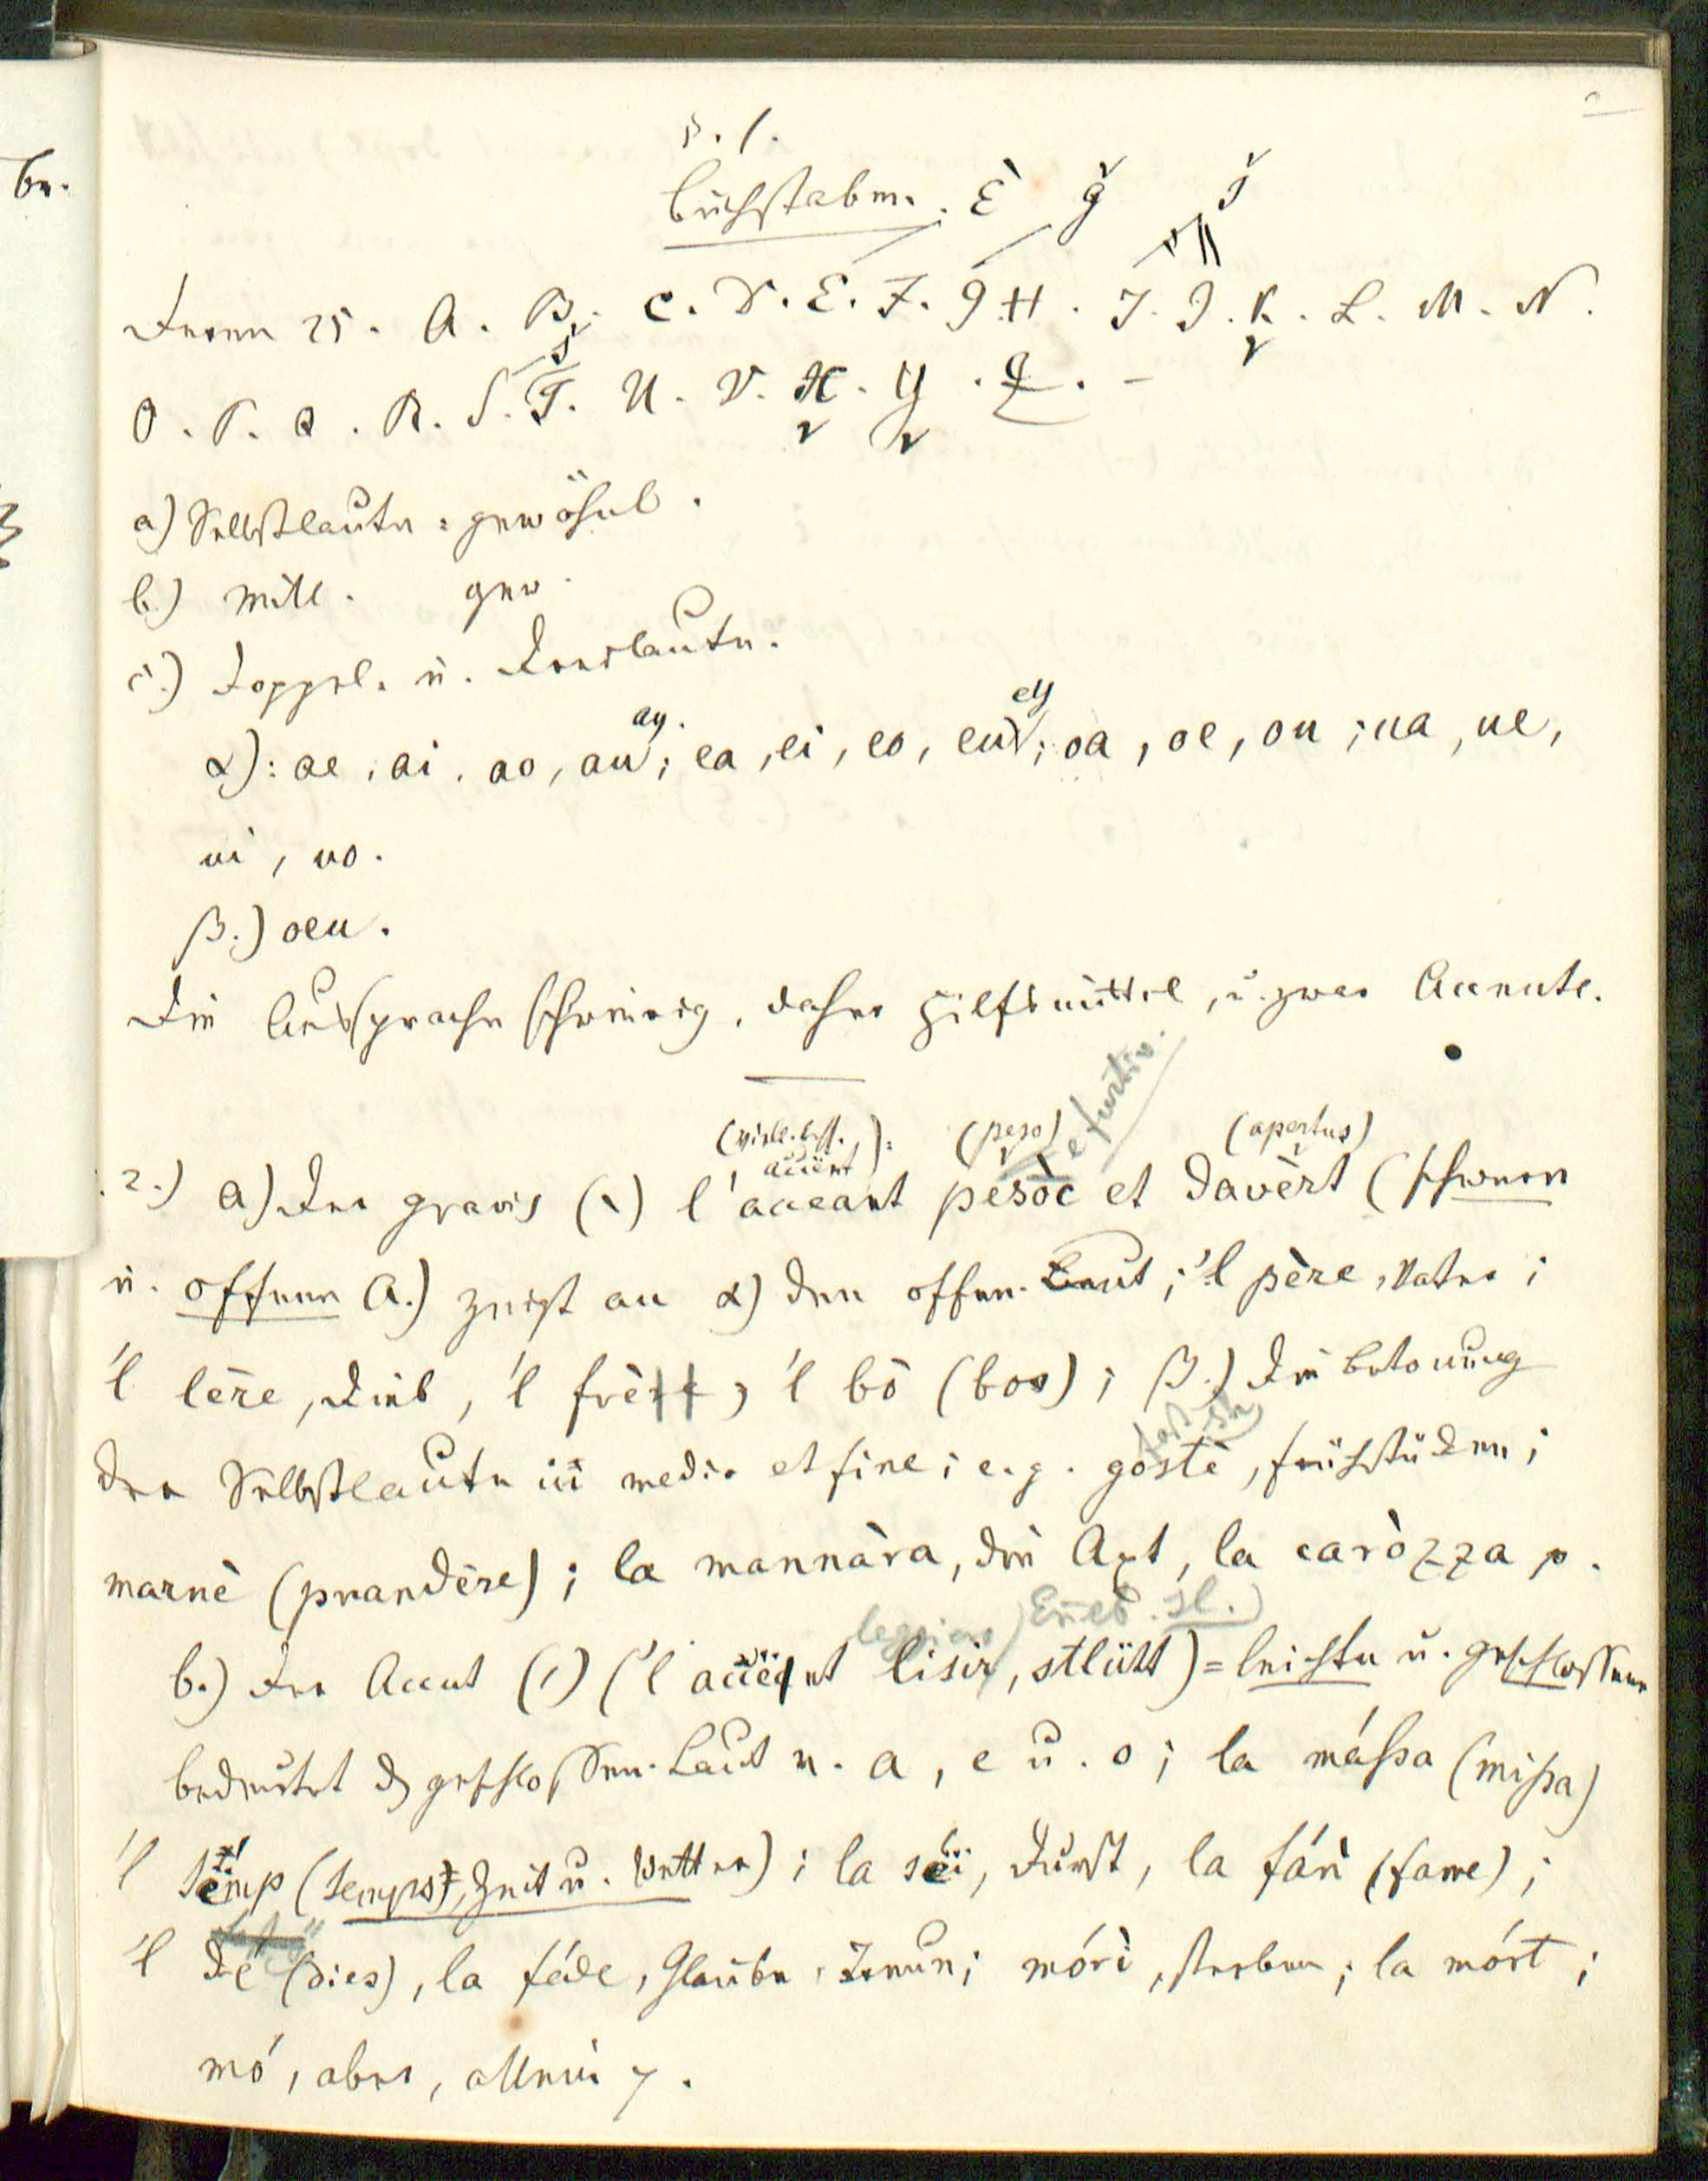 §. 1.
Buchstaben. È ğ
Deren 25. A. B. C. D. E. F. G. H. I. J. K. L. M. N.
O. P. Q. R. S. T. U. V. X. Y. Z. –
a) Selbstlauter = gewöhnl.
b.) Mitl. gew.
c.) Doppel- u. Dreilauter.
ay. ey
α): ae, ai, ao, au; ea, ei, eo, eu; oa, oe, ou; ua, ue,
ui, uo.
β.) oeu.
Die Aussprache schwierig, daher Hilfsmittel, u. zwar Accente.
e furtiv.
(peso) (apertus)
2.) a) Der gravis (\) l'acceant pesòc et davèrt (schwerer
u. offener A.) zeigt an α) den offen. Laut; 'l père, Vater;
'l lère, Dieb, 'l frè, 'l bò (bos); β.) die Betonung
der Selbstlaute in medio et fine; e.g. gostè, frühstücken;
marnè (prandère); la mannàra, die Axt, la caròzza p.
b.) Der Accut (/) ('l accënt lisir, stlütt) = leichter u. geschlossener
bedeutet d. geschlossen. Laut v. a, e u. o; la mássa (missa)
'l témp (temps), Zeit u. Wetter); la sëi, Durst, la fán (fame);
'l dé (dies), la féde, Glaube, Treue; mórì, sterben; la mórt;
mó, aber, allein